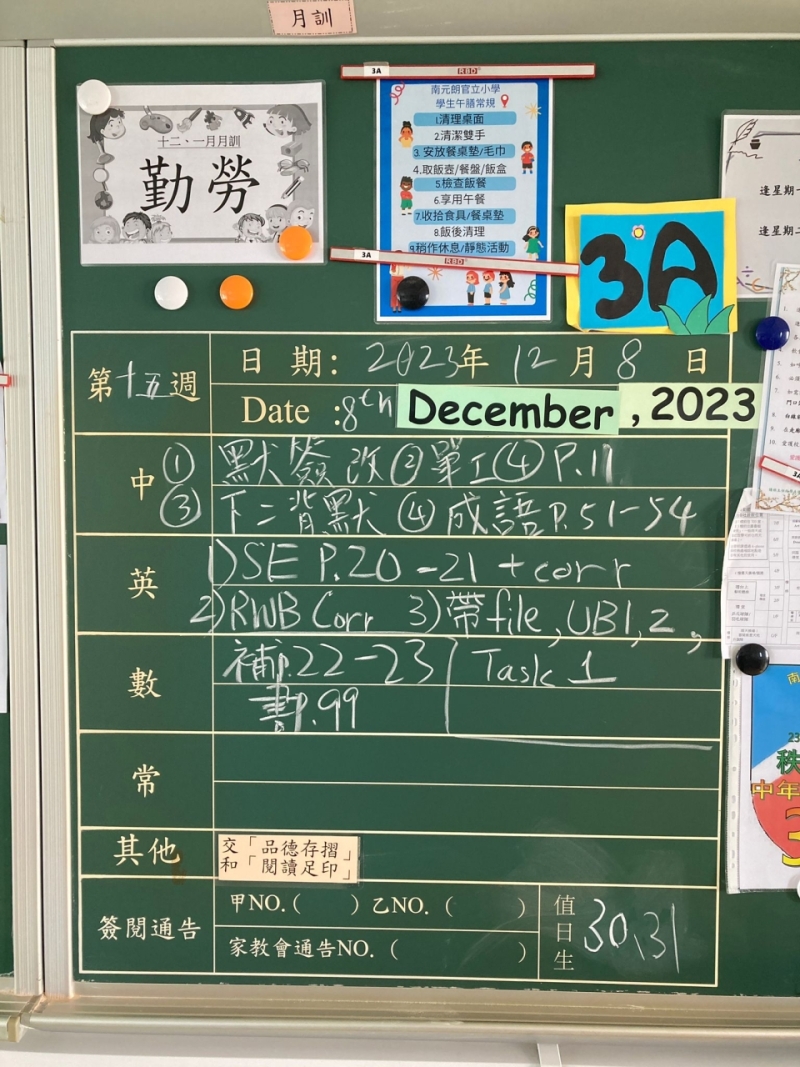 月訓
十二、一月月訓
勤勞
3A RBD
南元朗官立小學
學生午膳常規
1.清理桌面
2.清潔雙手
3.安放餐桌墊/毛巾
4.取飯壺/餐盤/飯盒
5.檢查飯餐
6.享用午餐
7.收拾食具/餐桌墊
8.飯後清理
9.稍作休息/靜態活動
3A RBD
3A
逢星期一
逢星期二
第十五週
日期：2023年12月8日
Date :8th December, 2023
中 ① 默簽改 ② 單工④ P.11
③ 下二背默 ④ 成語P.51-54
英 1) SE P.20-21 + corr
2) RWB Corr 3) 帶file, UB1, 2,
數 補P.22-23 Task 1
書P.99
常
其他 交「品德存摺」
和「閱讀足印」
簽閱通告 甲NO.( ) 乙NO.( )
家教會通告NO.( )
值日生 30,31
南
23
秩
中年
3